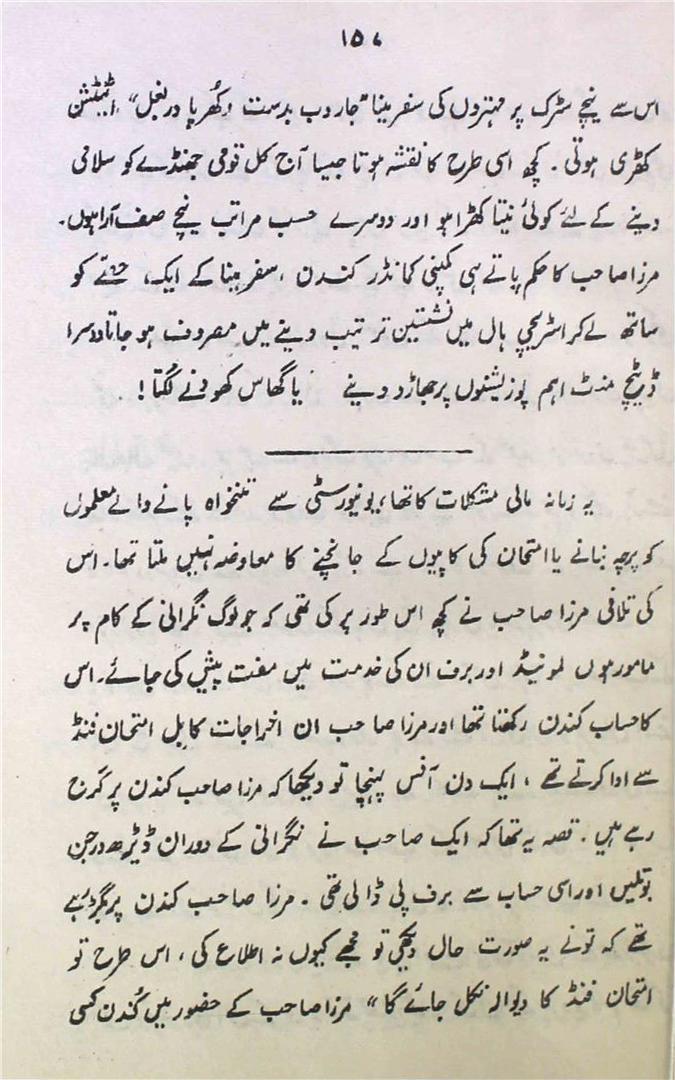 ۱۵۷
اس سے نیچے سڑک پر مہتروں کی سفر مینا "جاروب بدست وکُھرپا در بغل"، اٹینشن
کھڑی ہوتی۔ کچھ اسی طرح کا نقشہ ہوتا جیسا آج کل قومی جھنڈے کو سلامی
دینے کے لئے کوئی نیتا کھڑا ہو اور دوسرے حسب مراتب نیچے صف آرا ہوں۔
مرزا صاحب کا حکم پاتے ہی کمپنی کمانڈر کندن، سفر مینا کے ایک حصّے کو
ساتھ لے کر اسٹریچی ہال میں نشستیں ترتیب دینے میں مصروف ہو جاتا دوسرا
ڈیٹیچ منٹ اہم پوزیشنوں پر جھاڑو دینے یا گھاس کھودنے لگتا!
یہ زمانہ مالی مشکلات کا تھا، یونیورسٹی سے تنخواہ پانے والے معلموں
کو پرچہ بنانے یا امتحان کی کاپیوں کے جانچنے کا معاوضہ نہیں ملتا تھا۔ اس
کی تلافی مرزا صاحب نے کچھ اس طور پر کی تھی کہ جو لوگ نگرانی کے کام پر
مامور ہوں لمونیڈ اور برف ان کی خدمت میں مفت پیش کی جائے۔ اس
کا حساب کندن رکھتا تھا اور مرزا صاحب ان اخراجات کا بل امتحان فنڈ
سے ادا کرتے تھے، ایک دن آفس پہنچا تو دیکھا کہ مرزا صاحب کندن پر گرج
رہے ہیں۔ قصہ یہ تھا کہ ایک صاحب نے نگرانی کے دوران ڈیڑھ درجن
بوتلیں اور اسی حساب سے برف پی ڈالی تھی۔ مرزا صاحب کندن پر بگڑ رہے
تھے کہ تو نے یہ صورت حال دیکھی تو مجھے کیوں نہ اطلاع کی، اس طرح تو
امتحان فنڈ کا دیوالہ نکل جائے گا" مرزا صاحب کے حضور میں کُندن کسی